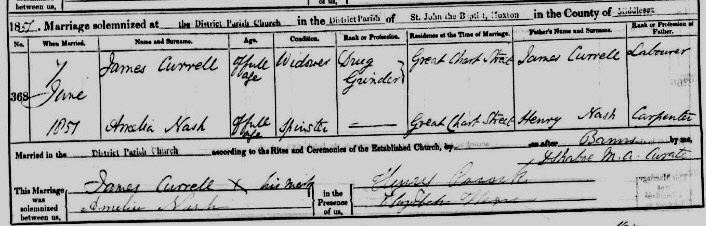 between us,
1857. Marriage solemnized at the District Parish Church in the District Parish of St. John the Baptist, Hoxton in the County of Middlesex
No. When Married. Name and Surname. Age. Condition. Rank or Profession. Residence at the Time of Marriage. Father's Name and Surname. Rank or Profession of Father.
368 7 June 1857
James Currell Of full age Widower Drug Grinder Great Chart Street James Currell Labourer
Amelia Nash Of full age Spinster — Great Chart Street Henry Nash Carpenter
Married in the District Parish Church according to the Rites and Ceremonies of the Established Church, by or after Banns by me,
M.A. Curate
This Marriage was solemnized between us,
James Currell X his mark
Amelia Nash
in the Presence of us,
Henry
Elizabeth